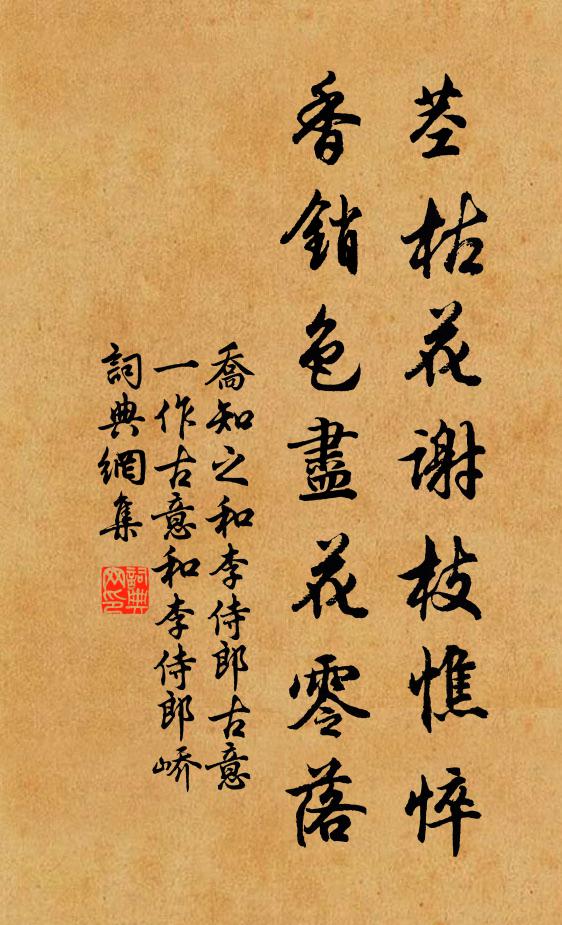 莖枯花謝枝憔悴
香銷色盡花零落
喬知之和李侍郎古意
一作古意和李侍郎嶠
詞典網集
詞典網印